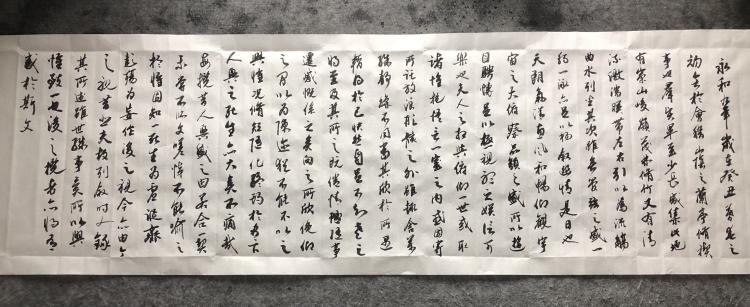 永和九年歲在癸丑暮春之
初會於會稽山陰之蘭亭脩禊
事也群賢畢至少長咸集此地
有崇山峻嶺茂林脩竹又有清
流激湍映帶左右引以為流觴
曲水列坐其次雖無管弦之盛一
觴一詠亦足以暢叙幽情是日也
天朗氣清惠風和暢仰觀宇
宙之大俯察品類之盛所以遊
目騁懷足以極視聽之娛信可
樂也夫人之相與俯仰一世或取
諸懷抱悟言一室之內或因寄
所託放浪形骸之外雖趣舍萬
殊靜躁不同當其欣於所遇
暫得於己快然自足不知老之
將至及其所之既倦情隨事
遷感慨係之矣向之所欣俛仰
之間以為陳迹猶不能不以之
興懷況脩短隨化終期於盡古
人云死生亦大矣豈不痛哉
每攬昔人興感之由若合一契
未嘗不臨文嗟悼不能喻之
於懷固知一死生為虛誕齊
彭殤為妄作後之視今亦由今
之視昔悲夫故列叙時人錄
其所述雖世殊事異所以興
懷其致一也後之攬者亦將有
感於斯文